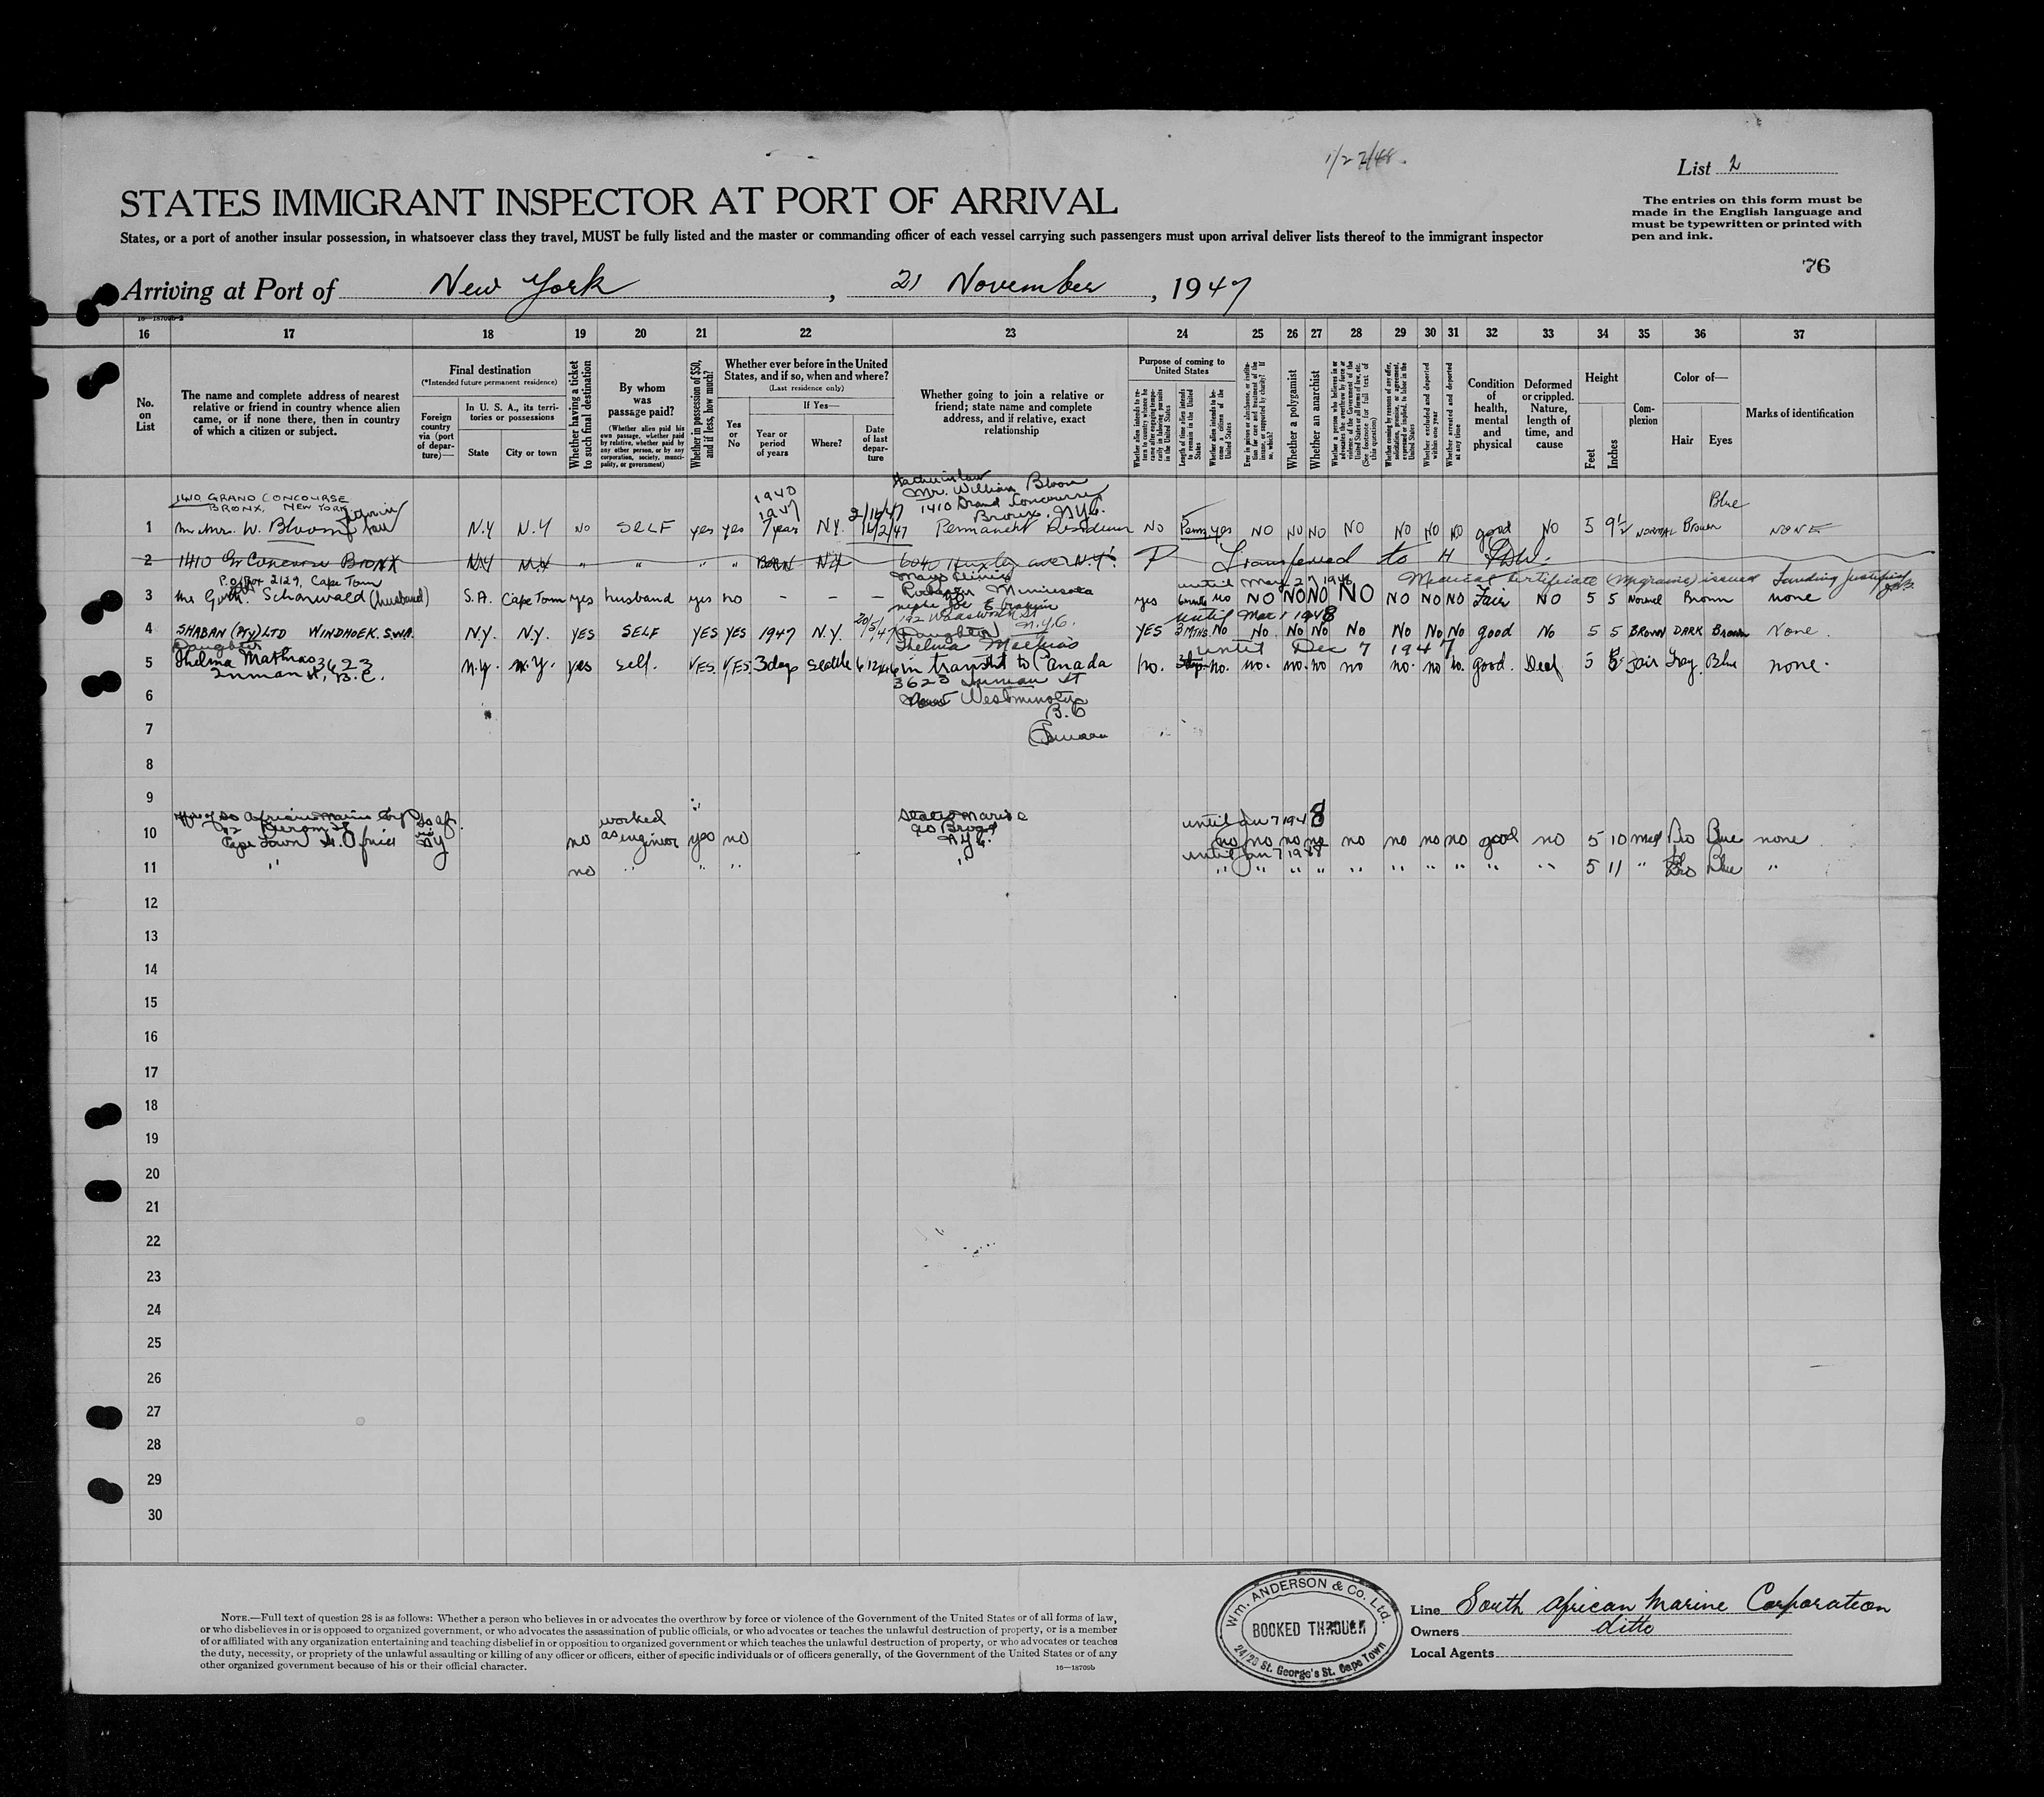 1/22/48.
List 2
STATES IMMIGRANT INSPECTOR AT PORT OF ARRIVAL
The entries on this form must be
made in the English language and
must be typewritten or printed with
pen and ink.
States, or a port of another insular possession, in whatsoever class they travel, MUST be fully listed and the master or commanding officer of each vessel carrying such passengers must upon arrival deliver lists thereof to the immigrant inspector
76
Arriving at Port of New York, 21 November, 1947
16 17 18 19 20 21 22 23 24 25 26 27 28 29 30 31 32 33 34 35 36 37
No. on List
The name and complete address of nearest relative or friend in country whence alien came, or if none there, then in country of which a citizen or subject.
Final destination
(*Intended future permanent residence)
Foreign country via (port of departure)—
In U. S. A., its territories or possessions
State
City or town
Whether having a ticket to such final destination
By whom was passage paid?
(Whether alien paid his own passage, whether paid by relative, whether paid by any other person, or by any corporation, society, municipality, or government)
Whether in possession of $50, and if less, how much?
Whether ever before in the United States, and if so, when and where?
(Last residence only)
Yes or No
If Yes—
Year or period of years
Where?
Date of last departure
Whether going to join a relative or friend; state name and complete address, and if relative, exact relationship
Purpose of coming to United States
Length of time alien intends to remain in the United States
Whether alien intends to become a citizen of the United States
Whether a polygamist
Whether an anarchist
Whether excluded and deported within one year
Whether arrested and deported at any time
Condition of health, mental and physical
Deformed or crippled. Nature, length of time, and cause
Height
Feet
Inches
Complexion
Color of—
Hair
Eyes
Marks of identification
1410 GRAND CONCOURSE
BRONX, NEW YORK
Mr. William Bloom
1410 Grand Concourse
Bronx, N.Y.C.
1940
1947
Blue
1 W. Bloom N.Y N.Y NO SELF yes yes 7 year N.Y. 16/2/47 Permanent Residence NO Perm yes NO NO NO NO NO NO NO good NO 5 9½ NORMAL Brown NONE
2 1410 Gr Concourse BRONX N.Y N.Y " " " " BORN N.Y 6040 Huxley ave N.Y. P Transferred to H
P.O. Box 2129, Cape Town
Mayo Clinic
Rochester Minnesota
until May 27 1948
Medical Certificate (Migraine) issued Landing Justified
3 Schonwald (husband) S.A. Cape Town yes husband yes no – – – yes 6 months no NO NO NO NO NO NO NO Fair NO 5 5 Normal Brown none
until Mar 1 1948
4 SHABAN (PTY) LTD WINDHOEK. S.W.A. N.Y. N.Y. YES SELF YES YES 1947 N.Y. 192 Wadsworth N.Y.C. YES 3 MTHS. No No. No No No No No No good No 5 5 BROWN DARK Brown None.
Daughter
Daughter
Thelma Mathias
until Dec 7 1947
5 Thelma Mathias 3623 N.Y. N.Y. yes self. YES. YES. 3 days Seattle in transit to Canada no. no. no. no. no no no. no no. good. Deaf 5 Fair Gray. Blue none.
Inman St, B.C.
3623 Inman St
6 Westminster
B.C
7
8
9
So African Marine Corp So af.
States Marine
90 Broad
N.Y.C.
worked
until Jan 7 1948
10 Cape Town NY no as engineer yes no no no no no no no no no good no 5 10 med Bro Blue none
until Jan 7 1948
11 " no " " " " " " " " " " " " " " 5 11 " Bro Blue "
12
13
14
15
16
17
18
19
20
21
22
23
24
25
26
27
28
29
30
NOTE.—Full text of question 28 is as follows: Whether a person who believes in or advocates the overthrow by force or violence of the Government of the United States or of all forms of law,
or who disbelieves in or is opposed to organized government, or who advocates the assassination of public officials, or who advocates or teaches the unlawful destruction of property, or is a member
of or affiliated with any organization entertaining and teaching disbelief in or opposition to organized government or which teaches the unlawful destruction of property, or who advocates or teaches
the duty, necessity, or propriety of the unlawful assaulting or killing of any officer or officers, either of specific individuals or of officers generally, of the Government of the United States or of any
other organized government because of his or their official character.
16—18709b
Wm. ANDERSON & Co. Ltd.
BOOKED THROUGH
24/20 St. George's St. Cape Town
Line South African Marine Corporation
Owners ditto
Local Agents